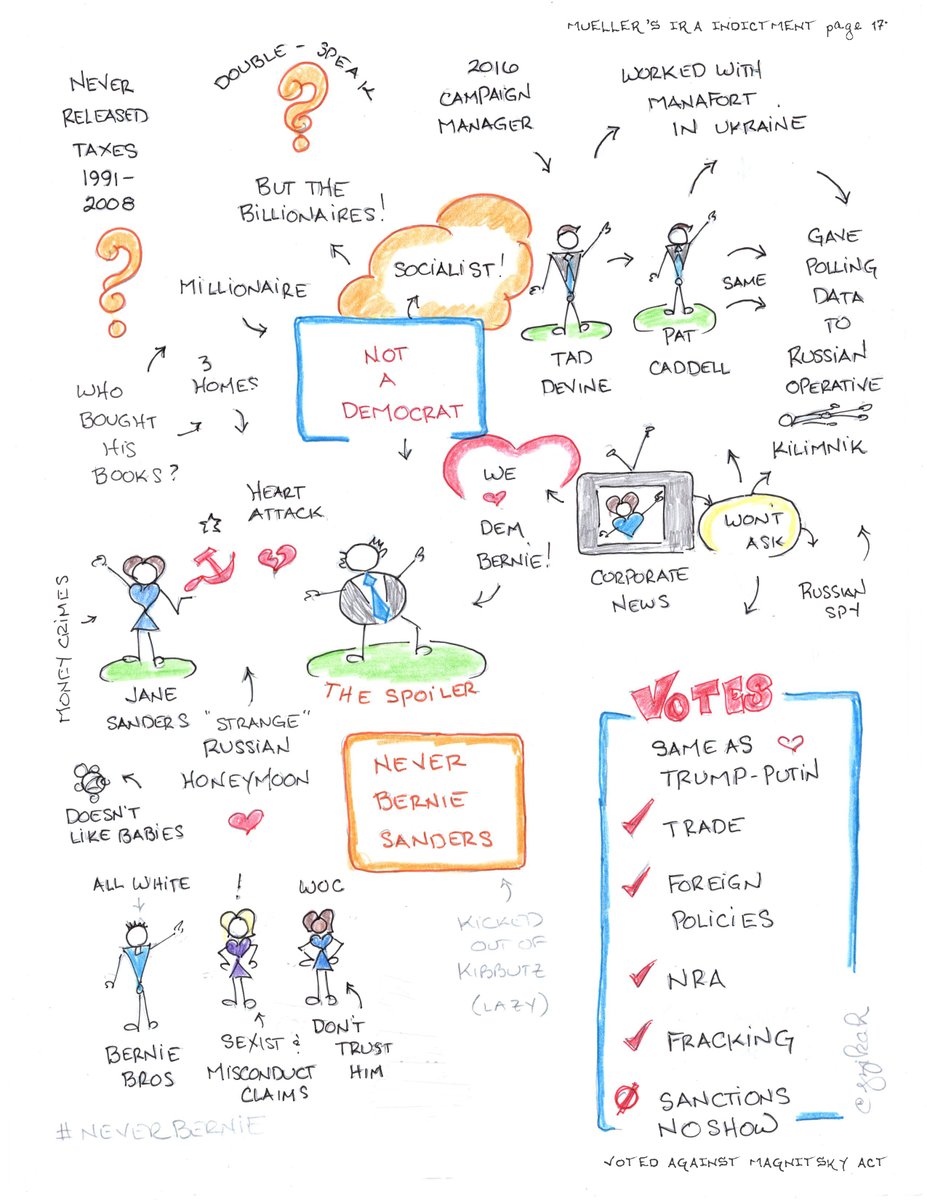 MUELLER'S IRA INDICTMENT page 17.
NEVER
RELEASED
TAXES
1991-
2008
DOUBLE-SPEAK
BUT THE
BILLIONAIRES!
2016
CAMPAIGN
MANAGER
WORKED WITH
MANAFORT
IN UKRAINE
SOCIALIST!
MILLIONAIRE
NOT
A
DEMOCRAT
TAD
DEVINE
PAT
CADDELL
SAME
GAVE
POLLING
DATA
TO
RUSSIAN
OPERATIVE
KILIMNIK
WHO
BOUGHT
HIS
BOOKS?
3
HOMES
HEART
ATTACK
WE
DEM,
BERNIE!
CORPORATE
NEWS
WON'T
ASK
RUSSIAN
SPY
MONEY CRIMES
JANE
SANDERS
THE SPOILER
"STRANGE"
RUSSIAN
HONEYMOON
DOESN'T
LIKE BABIES
NEVER
BERNIE
SANDERS
VOTES
SAME AS
TRUMP-PUTIN
TRADE
FOREIGN
POLICIES
NRA
FRACKING
SANCTIONS
NO SHOW
ALL WHITE
!
WOC
BERNIE
BROS
SEXIST &
MISCONDUCT
CLAIMS
DON'T
TRUST
HIM
KICKED
OUT OF
KIBBUTZ
(LAZY)
#NEVERBERNIE
VOTED AGAINST MAGNITSKY ACT